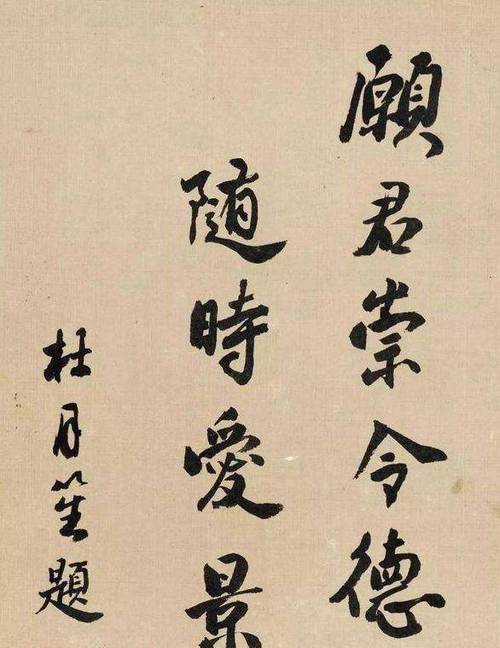 願君崇令德
隨時愛景
杜月笙題